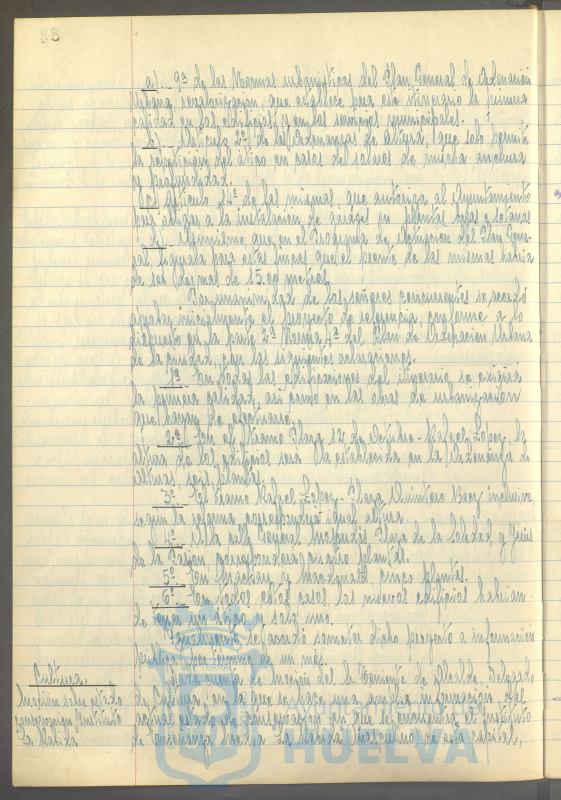 88
a).- 9ª de las Normas urbanísticas del Plan General de Ordenación
Urbana, revalorización, que establece para este itinerario la primera
calidad en los edificios y en los servicios municipales.
b).- Artículo 2º de las Ordenanzas de Altura, que solo permite
la del ático en casos de solares de mucha anchura
y profundidad.
c) Artículo 24º de las mismas que autoriza al Ayuntamiento
para obligar a la instalación de garajes en plantas bajas o sótanos
d).- Asimismo que en el Programa de Actuación del Plan Gene-
ral figuraba para estas líneas que el frente de las mismas habría
de ser de mas de 15,00 metros.
Por unanimidad de los señores concurrentes se acordó
aprobar inicialmente el proyecto de referencia, conforme a lo
dispuesto en la parte 2ª Norma 4ª del Plan de Ordenación Urbana
de la ciudad, con las siguientes aclaraciones.
1º En todas las edificaciones del itinerario se exigirá
la primera calidad, así como en las obras de urbanización
que hayan de efectuarse.
2º En el tramo Plaza 12 de Octubre - Rafael López la
altura de los edificios será la establecida en la Ordenanza de
Alturas, seis plantas.
3º El tramo Rafael López - Plaza Quintero Baez inclusive
según la reforma, corresponderá igual altura.
4º A la calle General Plaza de la Soledad, y Jesús
de la Pasión corresponderá cuatro plantas.
5º En Gravina y Macdonald cinco plantas.
6º En todos estos casos los nuevos edificios habrán
de tener un ático y solo uno.
Finalmente se acordó someter dicho proyecto a información
pública por término de un mes.
Cultura.
Moción sobre estado
conservación Instituto
La Rábida
Dada cuenta de moción del Teniente de Alcalde, Delegado
de Cultura, en la que se hace una amplia información del
actual estado de conservación en que se encuentra el Instituto
de Enseñanza Media La Rábida masculino de esta capital,
HUELVA